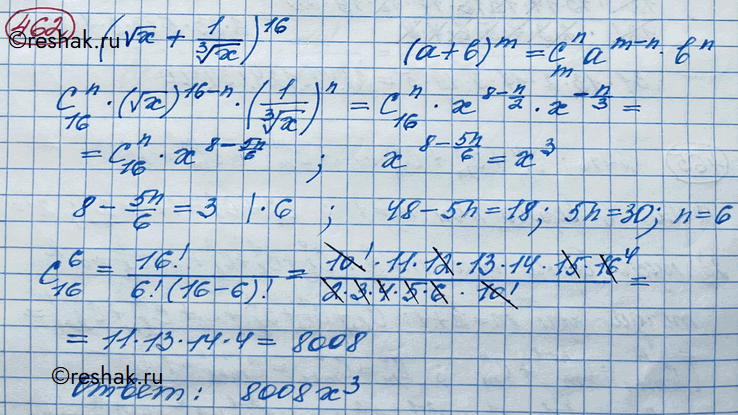 462 (√x + 1/∛x)^16 (a+b)^m = C_m^n a^(m-n) · b^n
©reshak.ru
C_16^n · (√x)^(16-n) · (1/∛x)^n = C_16^n · x^(8-n/2) · x^(-n/3) =
= C_16^n · x^(8-5n/6) ; x^(8-5n/6) = x^3
8 - 5n/6 = 3 | · 6 ; 48 - 5n = 18; 5n = 30; n = 6
C_16^6 = 16!/(6!(16-6)!) = (10! · 11 · 12 · 13 · 14 · 15 · 16^4)/(2 · 3 · 4 · 5 · 6 · 10!) =
= 11 · 13 · 14 · 4 = 8008
©reshak.ru
Ответ: 8008x^3